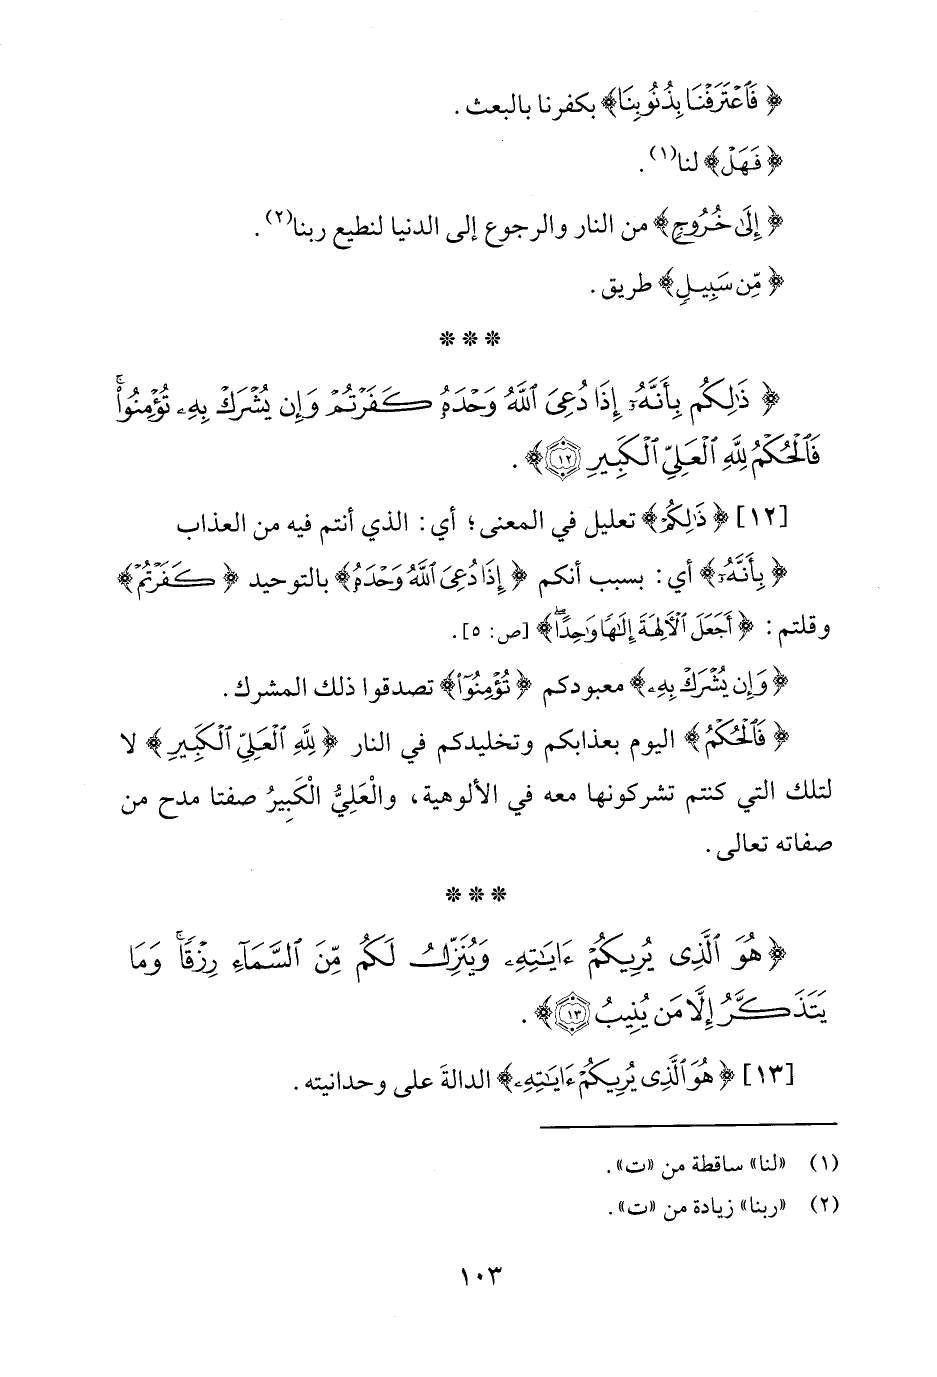 ﴿فَٱعْتَرَفْنَا بِذُنُوبِنَا﴾ بكفرنا بالبعث.
﴿فَهَلْ﴾ لنا(١).
﴿إِلَىٰ خُرُوجٍ﴾ من النار والرجوع إلى الدنيا لنطيع ربنا(٢).
﴿مِّن سَبِيلٍ﴾ طريق.
* * *
﴿ذَٰلِكُم بِأَنَّهُۥٓ إِذَا دُعِىَ ٱللَّهُ وَحْدَهُۥ كَفَرْتُمْ وَإِن يُشْرَكْ بِهِۦ تُؤْمِنُوا۟ ۚ
فَٱلْحُكْمُ لِلَّهِ ٱلْعَلِىِّ ٱلْكَبِيرِ ١٢﴾.
[١٢] ﴿ذَٰلِكُمْ﴾ تعليل في المعنى؛ أي: الذي أنتم فيه من العذاب
﴿بِأَنَّهُۥٓ﴾ أي: بسبب أنكم ﴿إِذَا دُعِىَ ٱللَّهُ وَحْدَهُۥ﴾ بالتوحيد ﴿كَفَرْتُمْ﴾
وقلتم: ﴿أَجَعَلَ ٱلْأَلِهَةَ إِلَٰهًا وَٰحِدًا ۖ﴾ [ص: ٥].
﴿وَإِن يُشْرَكْ بِهِۦ﴾ معبودكم ﴿تُؤْمِنُوٓا۟﴾ تصدقوا ذلك المشرك.
﴿فَٱلْحُكْمُ﴾ اليوم بعذابكم وتخليدكم في النار ﴿لِلَّهِ ٱلْعَلِىِّ ٱلْكَبِيرِ﴾ لا
لتلك التي كنتم تشركونها معه في الألوهية، والْعَلِيُّ الْكَبِيرُ صفتا مدح من
صفاته تعالى.
* * *
﴿هُوَ ٱلَّذِى يُرِيكُمْ ءَايَٰتِهِۦ وَيُنَزِّلُ لَكُم مِّنَ ٱلسَّمَآءِ رِزْقًا ۚ وَمَا
يَتَذَكَّرُ إِلَّا مَن يُنِيبُ ١٣﴾.
[١٣] ﴿هُوَ ٱلَّذِى يُرِيكُمْ ءَايَٰتِهِۦ﴾ الدالةَ على وحدانيته.
(١) «لنا» ساقطة من «ت».
(٢) «ربنا» زيادة من «ت».
١٠٣